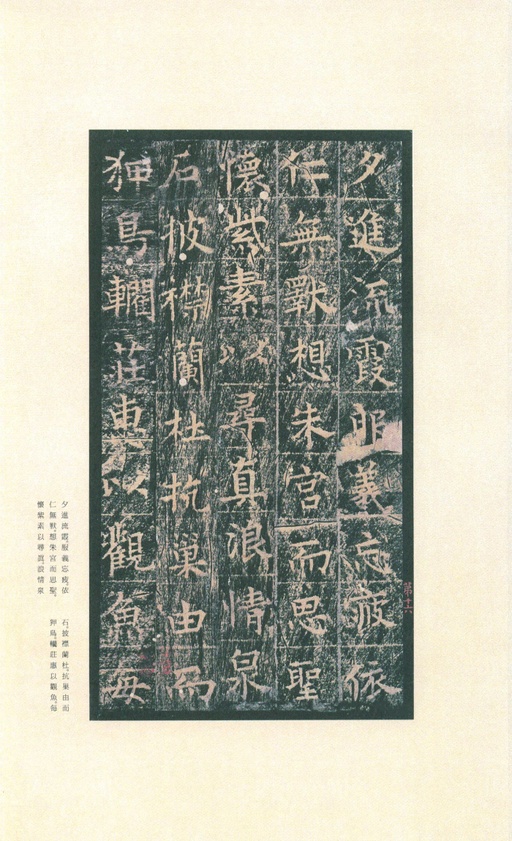 夕進流霞服義忘疲依
仁無斁想朱宮而思聖
懷紫素以尋真浪情泉
石披襟蘭杜抗巢由而
狎鳥轥莊惠以觀魚每
第十六
夕進流霞，服義忘疲，依
仁無斁，想朱宮而思聖，
懷紫素以尋真，浪情泉
石，披襟蘭杜，抗巢由而
狎鳥，轥莊惠以觀魚，每